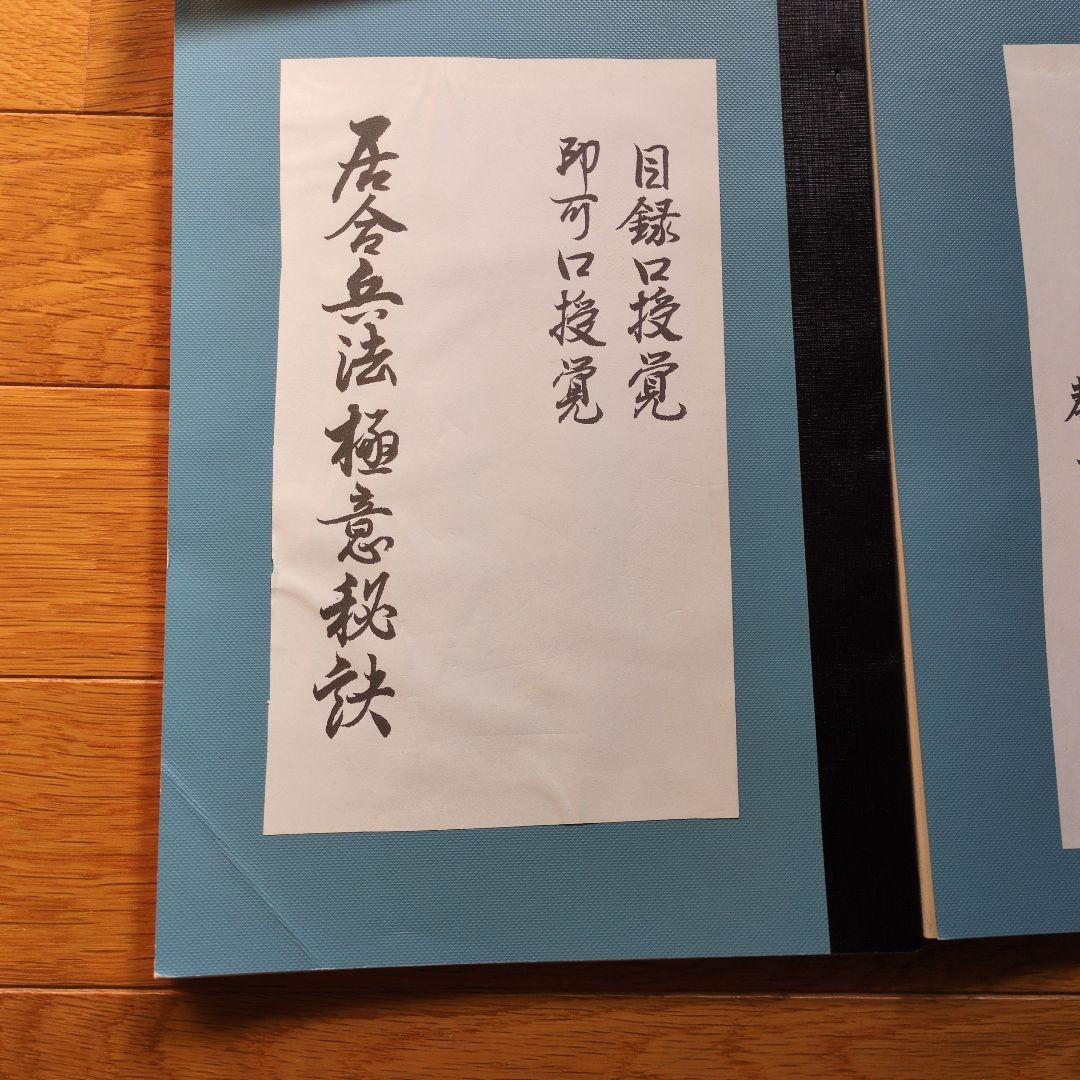 目録口授覚
印可口授覚
居合兵法極意秘訣